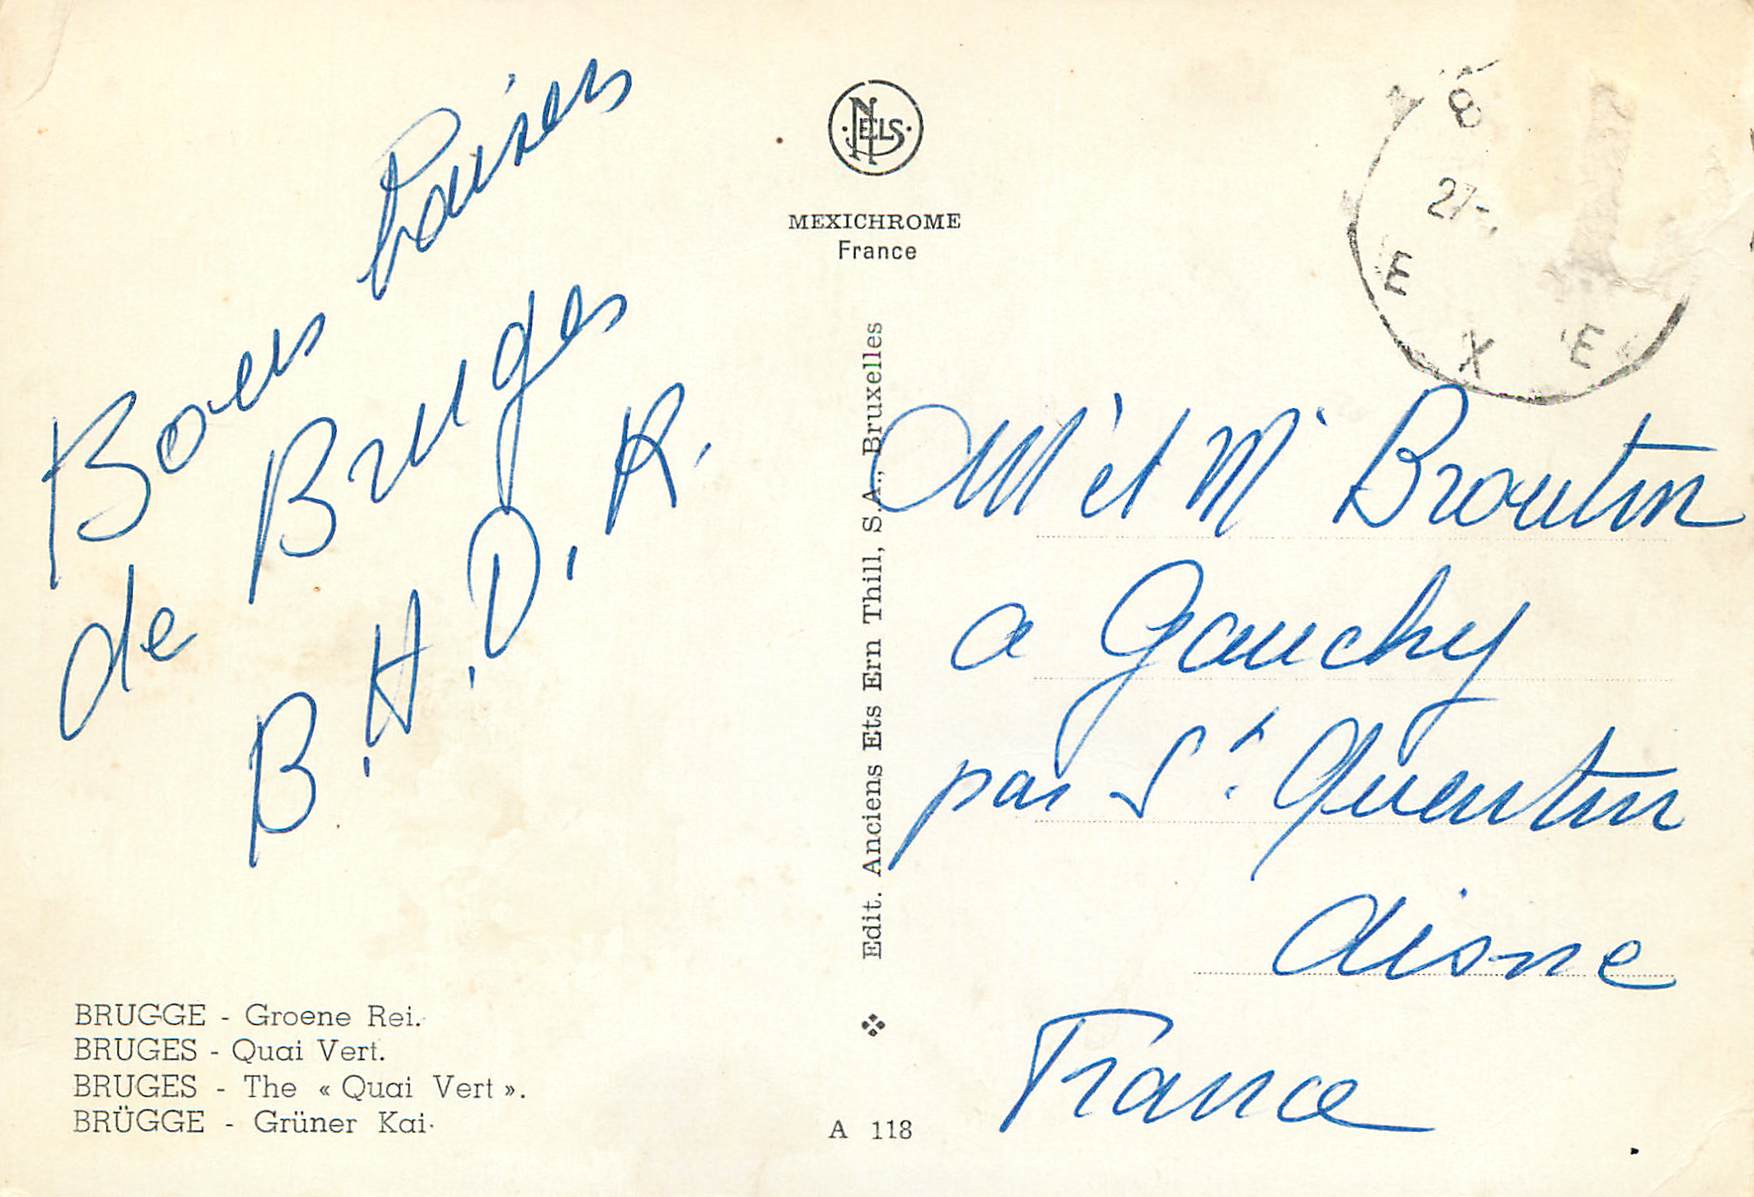 Bons baisers
de Bruges
B. H. D. R.
BRUGGE - Groene Rei.
BRUGES - Quai Vert.
BRUGES - The « Quai Vert ».
BRÜGGE - Grüner Kai.
NELS
MEXICHROME
France
Edit. Anciens Ets Ern Thill, S.A., Bruxelles
A 118
8
27-
E X E
Mr et Me Broutin
a Gauchy
par St Quentin
Aisne
France